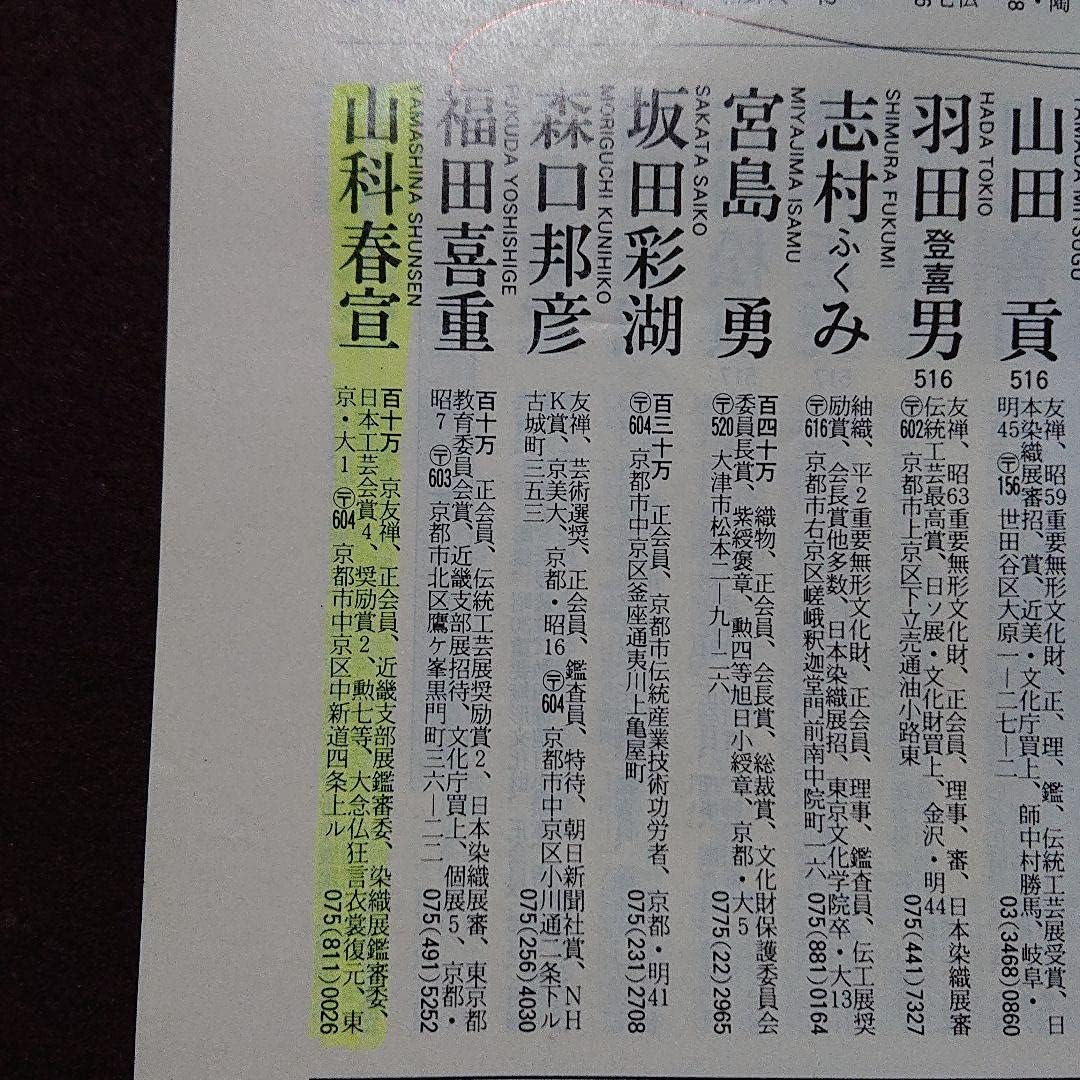 YAMADA MITSUGU
山田 貢
516
友禅、昭59重要無形文化財、正、理、鑑、伝統工芸展受賞、日
本染織展審招、賞、近美・文化庁買上、師中村勝馬、岐阜・
明45 〒156 世田谷区大原一ー二七ー二 03(3468)0860
HADA TOKIO
羽田登喜男
516
友禅、昭63重要無形文化財、正会員、理事、審、日本染織展審
伝統工芸最高賞、日ソ展・文化財買上、金沢・明44
〒602 京都市上京区下立売通油小路東 075(441)7327
SHIMURA FUKUMI
志村ふくみ
紬織、平2重要無形文化財、正会員、理事、鑑査員、伝工展奨
励賞、会長賞他多数、日本染織展招、東京文化学院卒・大13
〒616 京都市右京区嵯峨釈迦堂門前南中院町一六 075(881)0164
MIYAJIMA ISAMU
宮島 勇
百四十万 織物、正会員、会長賞、総裁賞、文化財保護委員会
委員長賞、紫綬褒章、勲四等旭日小綬章、京都・大5
〒520 大津市松本二ー九ー二六 0775(22)2965
SAKATA SAIKO
坂田彩湖
百三十万 正会員、京都市伝統産業技術功労者、京都・明41
〒604 京都市中京区釜座通夷川上亀屋町 075(231)2708
MORIGUCHI KUNIHIKO
森口邦彦
友禅、芸術選奨、正会員、鑑査員、特待、朝日新聞社賞、NH
K賞、京美大、京都・昭16 〒604 京都市中京区小川通二条下ル
古城町三五三 075(256)4030
FUKUDA YOSHISHIGE
福田喜重
百十万 正会員、伝統工芸展奨励賞2、日本染織展審、東京都
教育委員会賞、近畿支部展招待、文化庁買上、個展5、京都・
昭7 〒603 京都市北区鷹ケ峯黒門町三六ー二二 075(491)5252
YAMASHINA SHUNSEN
山科春宣
百十万 京友禅、正会員、近畿支部展鑑審委、染織展鑑審委、
日本工芸会賞4、奨励賞2、勲七等、大念仏狂言衣裳復元、東
京・大1 〒604 京都市中京区中新道四条上ル 075(811)0026